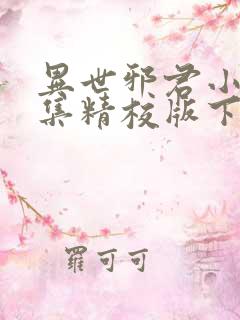 異世邪君小
集精校版下
羅可可